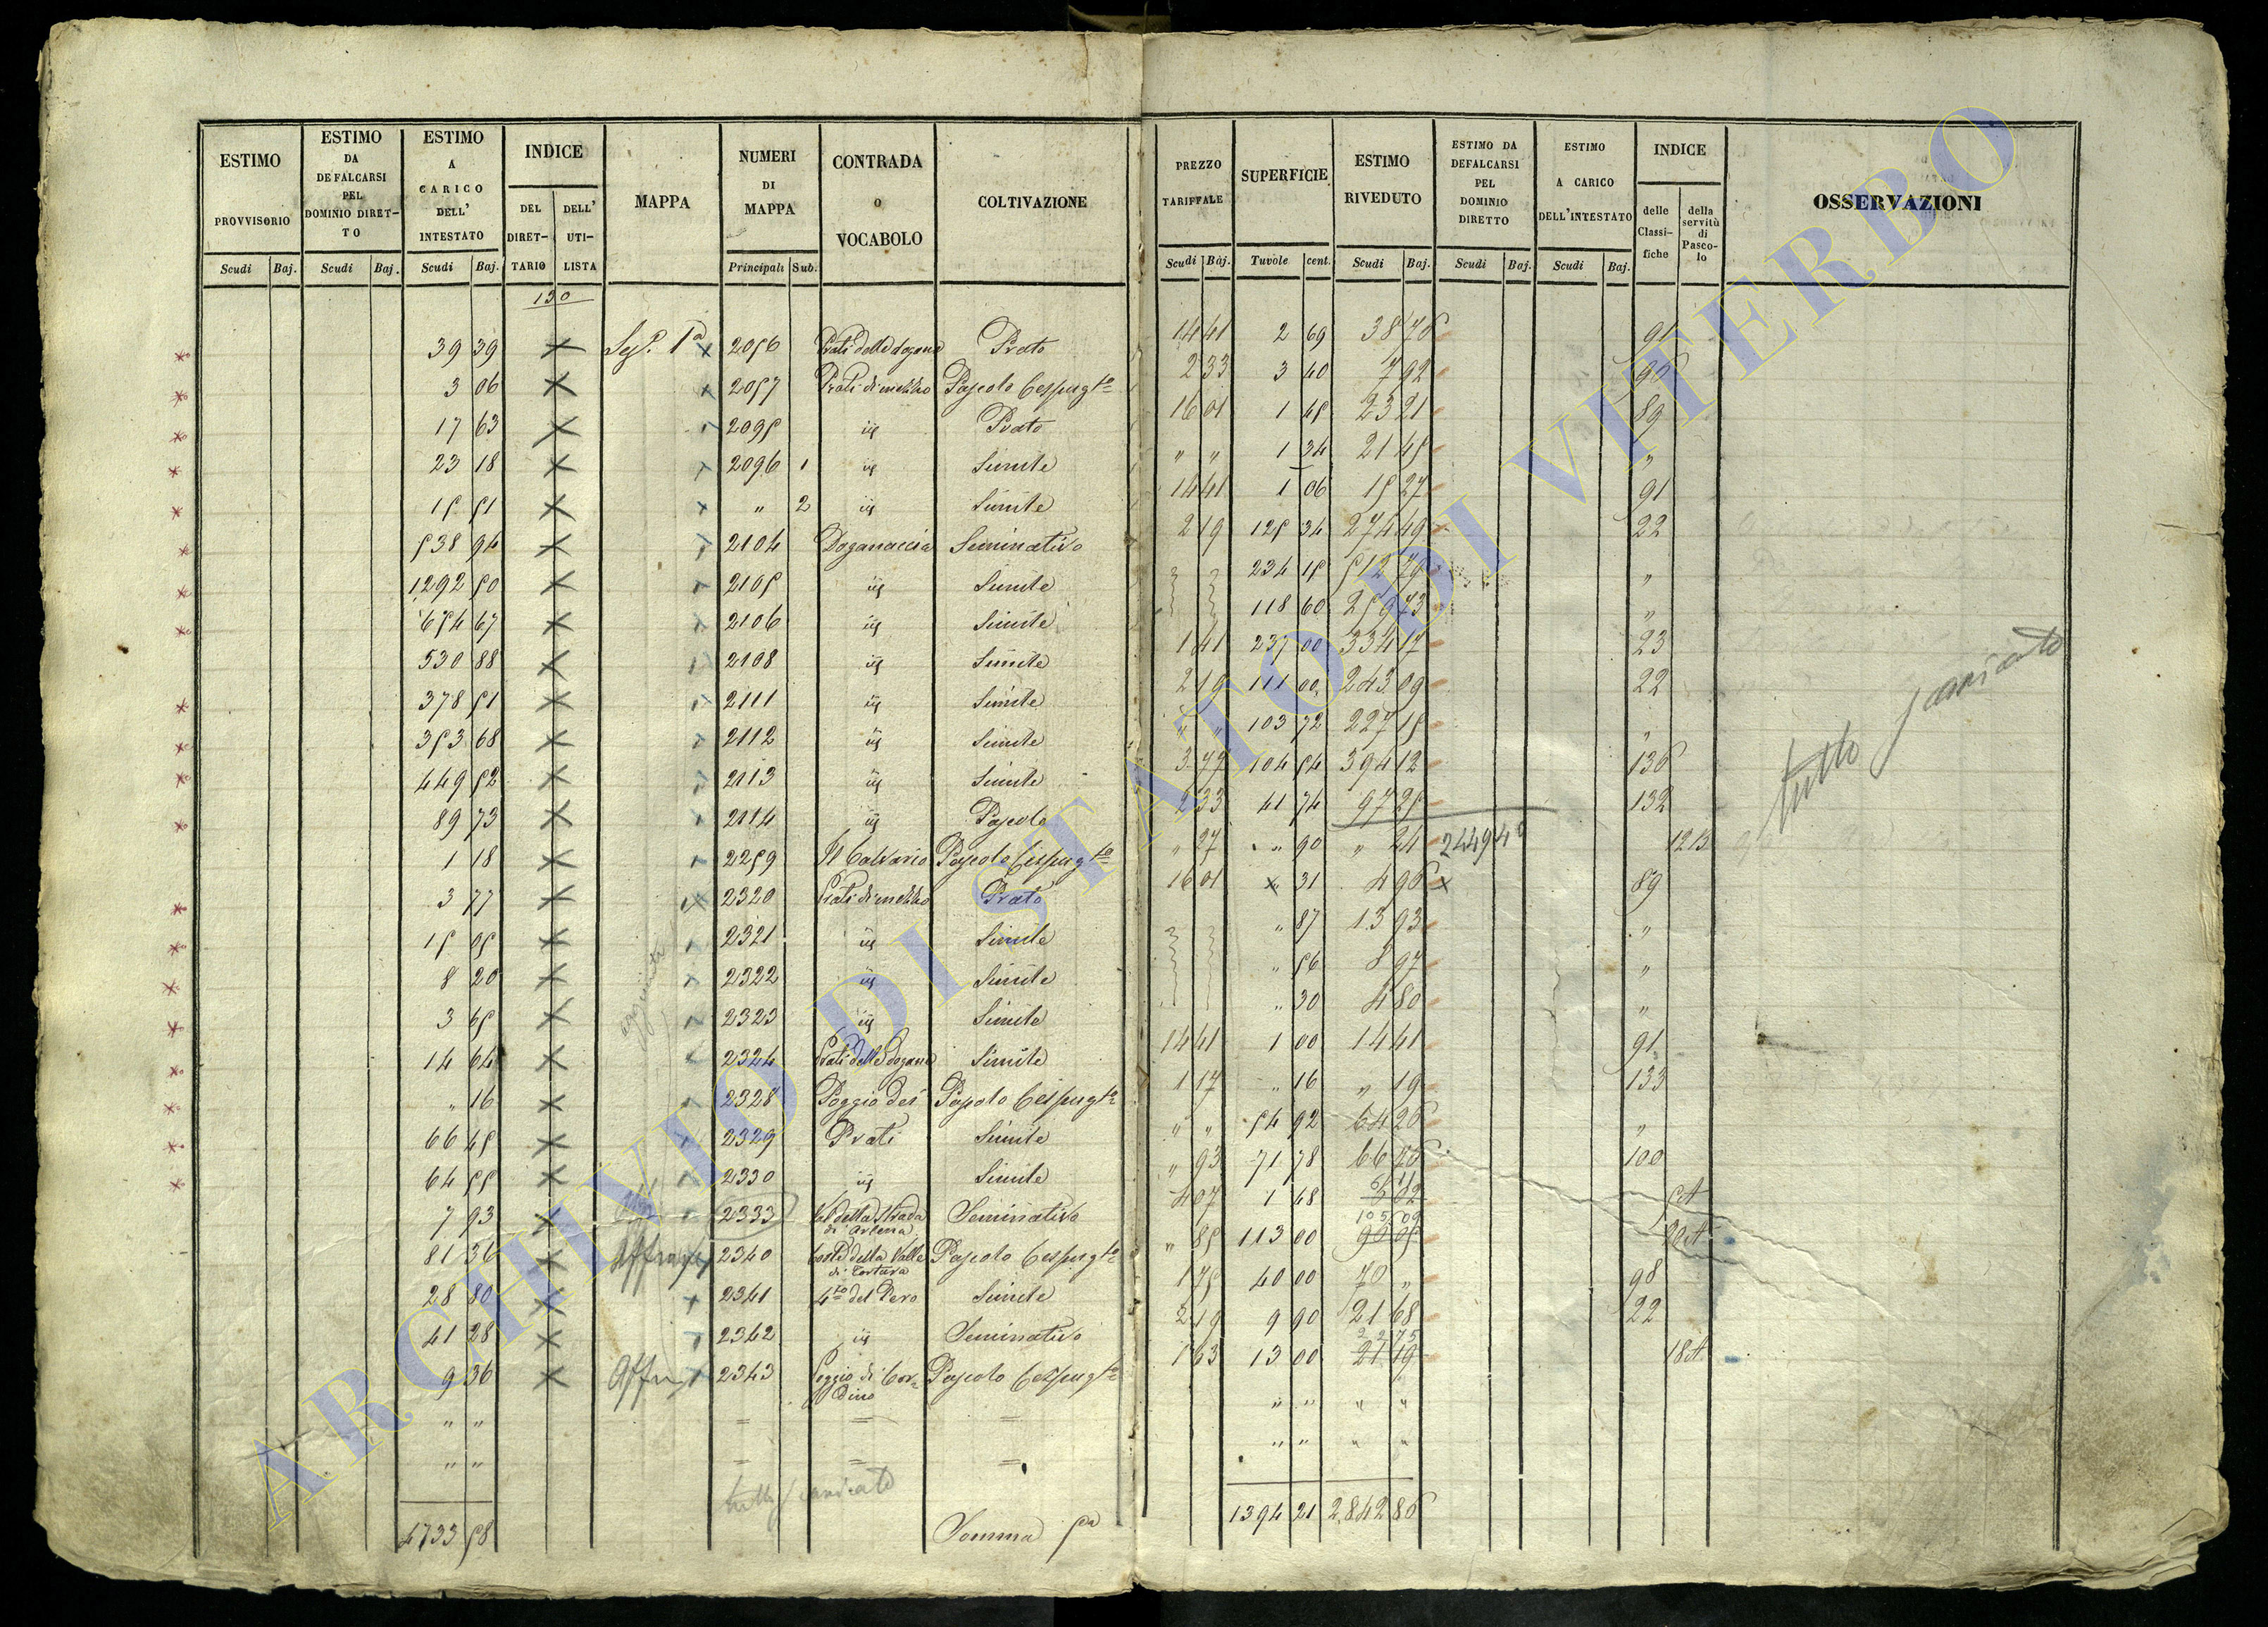 ESTIMO PROVVISORIO | ESTIMO DA DEFALCARSI PEL DOMINIO DIRETTO | ESTIMO A CARICO DELL' INTESTATO | INDICE DEL DIRETTARIO | DELL' UTILISTA | MAPPA | NUMERI DI MAPPA | CONTRADA O VOCABOLO | COLTIVAZIONE | PREZZO TARIFFALE | SUPERFICIE | ESTIMO RIVEDUTO | ESTIMO DA DEFALCARSI PEL DOMINIO DIRETTO | ESTIMO A CARICO DELL'INTESTATO | INDICE delle Classifiche | della servitù di Pascolo | OSSERVAZIONI
Scudi Baj. | Scudi Baj. | Scudi Baj. | Principali Sub. | Scudi Baj. | Tavole cent. | Scudi Baj. | Scudi Baj. | Scudi Baj.
130
39 39 × Sez. 1a × 2056 Prati della dogana Prato 14 41 2 69 38 76 91
3 06 × 2057 Prati di mezzo Pascolo Cespugto 2 33 3 40 7 92 90
17 63 × 2095 iij Prato 16 01 1 45 23 21 89
23 18 × 2096 1 iij Simile " " 1 34 21 45 "
15 51 × " 2 iij Simile 14 41 1 06 15 27 91
538 94 × 2104 Doganaccia Seminativo 2 19 125 34 274 49 22
1292 50 × 2105 iij Simile 234 15 512 79 "
654 67 × 2106 iij Simile 118 60 259 73 "
530 88 × 2108 iij Simile 1 41 237 00 334 17 23
378 51 × 2111 iij Simile 2 19 111 00 243 09 22
353 68 × 2112 iij Simile " " 103 72 227 15 "
449 52 × 2113 iij Simile 3 77 104 54 394 12 136
89 73 × 2114 iij Pascolo 2 33 41 74 97 25 132
1 18 × 2259 Il Calvario Pascolo Cespugto " 27 " 90 " 24 2449 40 12 B
3 77 × 2320 Prati di mezzo Prato 16 01 × 31 4 96 × 89
15 05 × 2321 iij Simile " 87 13 93 "
8 20 × 2322 iij Simile " 56 8 97 "
3 65 × 2323 iij Simile " 30 4 80 "
14 64 × 2324 Prati della dogana Simile 14 41 1 00 14 41 91
" 16 × 2328 Poggio dei Pascolo Cespugto 1 17 " 16 " 19 133
66 45 × 2329 Prati Simile " " 54 92 64 26 "
64 55 × 2330 iij Simile " 93 71 78 66 76 100
7 93 × 2333 Val della Strada di Arlena Seminativo 4 07 1 68 5A
81 36 × Affran 2340 Coste della Valle di Tortura Pascolo Cespugto " 85 113 00 105 09 20A
28 80 × 2341 4to del Pero Simile 1 75 40 00 70 " 98
41 28 × 2342 iij Seminativo 2 19 9 90 21 68 22
9 36 × Affr 2343 Poggio di Cordino Pascolo Cespugto 1 63 13 00 21 19 18A
" " = = = " " " "
" " = = = " " " "
tutto
4733 58 Somma 5a 1394 21 2,842 86
tutto
ARCHIVIO DI STATO DI VITERBO